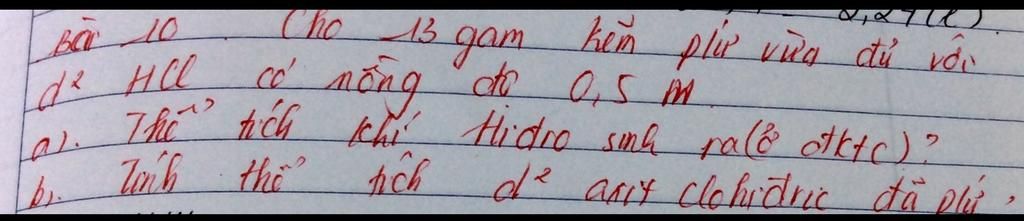 2,24 (l).
Bài 10. Cho 13 gam kẽm pứ vừa đủ với
d² HCl có nồng độ 0,5 M
a). Thể tích khí Hidro sinh ra (ở đktc)?
b). Tính thể tích d² axit clohiđric đã pứ?